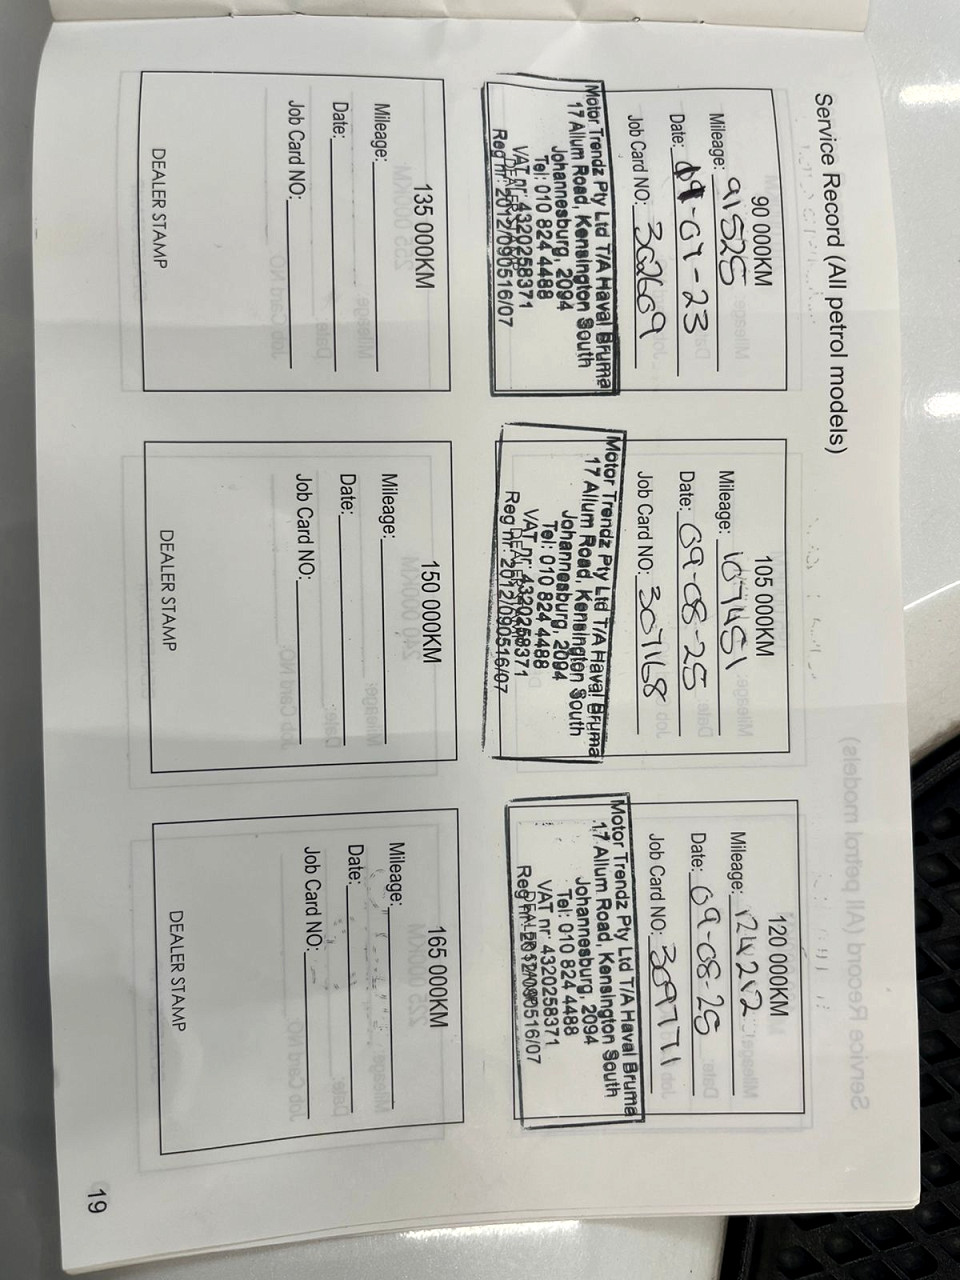 Service Record (All petrol models)
90 000KM
Mileage: 91525
Date: 09-01-23
Job Card NO: 302609
Motor Trendz Pty Ltd T/A Haval Bruma
17 Allum Road, Kensington South
Johannesburg, 2094
Tel: 010 824 4488
VAT nr: 4320258371
Reg nr: 2012/090516/07
105 000KM
Mileage: 107451
Date: 09-08-25
Job Card NO: 307168
Motor Trendz Pty Ltd T/A Haval Bruma
17 Allum Road, Kensington South
Johannesburg, 2094
Tel: 010 824 4488
VAT nr: 4320258371
Reg nr: 2012/090516/07
120 000KM
Mileage:
Date: 09-08-25
Job Card NO: 309771
Motor Trendz Pty Ltd T/A Haval Bruma
17 Allum Road, Kensington South
Johannesburg, 2094
Tel: 010 824 4488
VAT nr: 4320258371
Reg nr: 2012/090516/07
135 000KM
Mileage:
Date:
Job Card NO:
DEALER STAMP
150 000KM
Mileage:
Date:
Job Card NO:
DEALER STAMP
165 000KM
Mileage:
Date:
Job Card NO:
DEALER STAMP
19